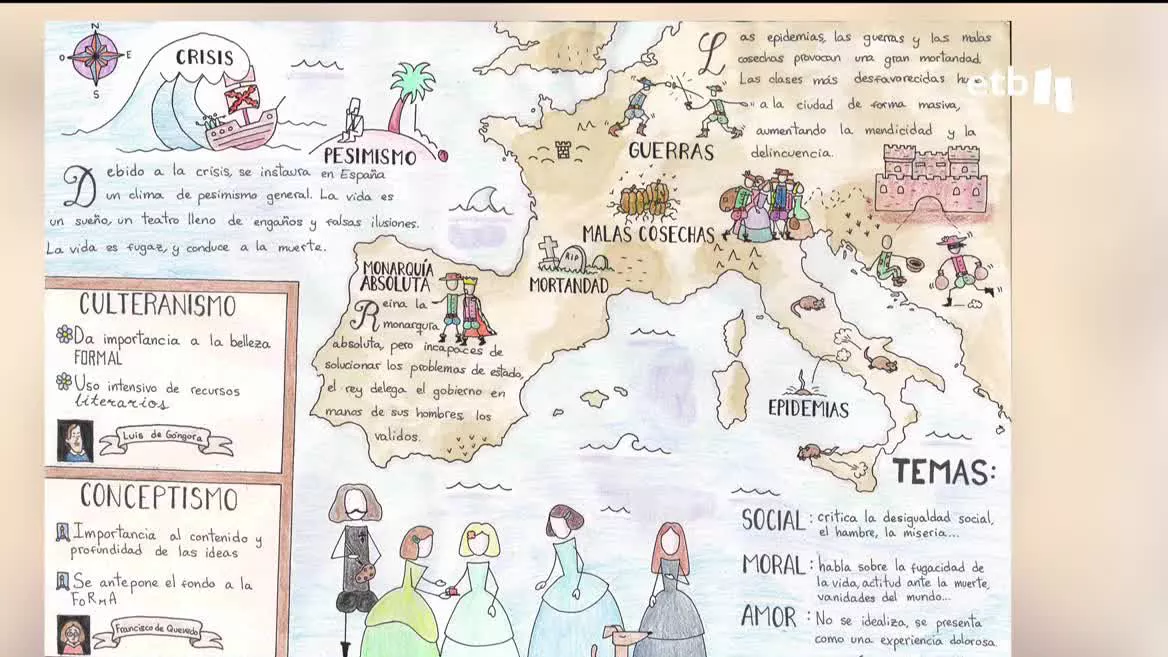 N
O
E
S
CRISIS
PESIMISMO
Debido a la crisis, se instaura en España
un clima de pesimismo general. La vida es
un sueño, un teatro lleno de engaños y falsas ilusiones.
La vida es fugaz, y conduce a la muerte.
GUERRAS
Las epidemias, las guerras y las malas
cosechas provocan una gran mortandad.
Las clases más desfavorecidas
a la ciudad de forma masiva,
aumentando la mendicidad y la
delincuencia.
etb
MALAS COSECHAS
RIP
MORTANDAD
MONARQUÍA
ABSOLUTA
Reina la
monarquía
absoluta, pero incapaces de
solucionar los problemas de estado,
el rey delega el gobierno en
manos de sus hombres, los
validos.
EPIDEMIAS
CULTERANISMO
Da importancia a la belleza
FORMAL
Uso intensivo de recursos
literarios
Luis de Góngora
CONCEPTISMO
Importancia al contenido y
profundidad de las ideas
Se antepone el fondo a la
FORMA
Francisco de Quevedo
TEMAS:
SOCIAL: critica la desigualdad social,
el hambre, la miseria...
MORAL: habla sobre la fugacidad de
la vida, actitud ante la muerte,
vanidades del mundo...
AMOR: No se idealiza, se presenta
como una experiencia dolorosa